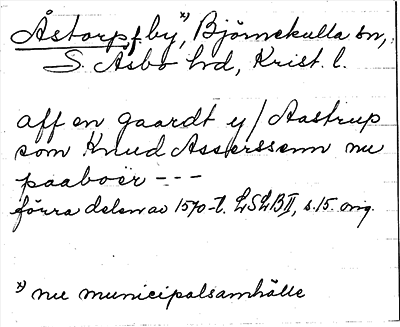 Åstorp, f. by *), Björnekulla sn,
S. Åsbo hd, Krist. l.
aff en gaardt y / Aastrup
som Knud Asserssenn nu
paaboer - - -
förra delen av 1570-t. LSLB II, s. 15. orig.
*) nu municipalsamhälle